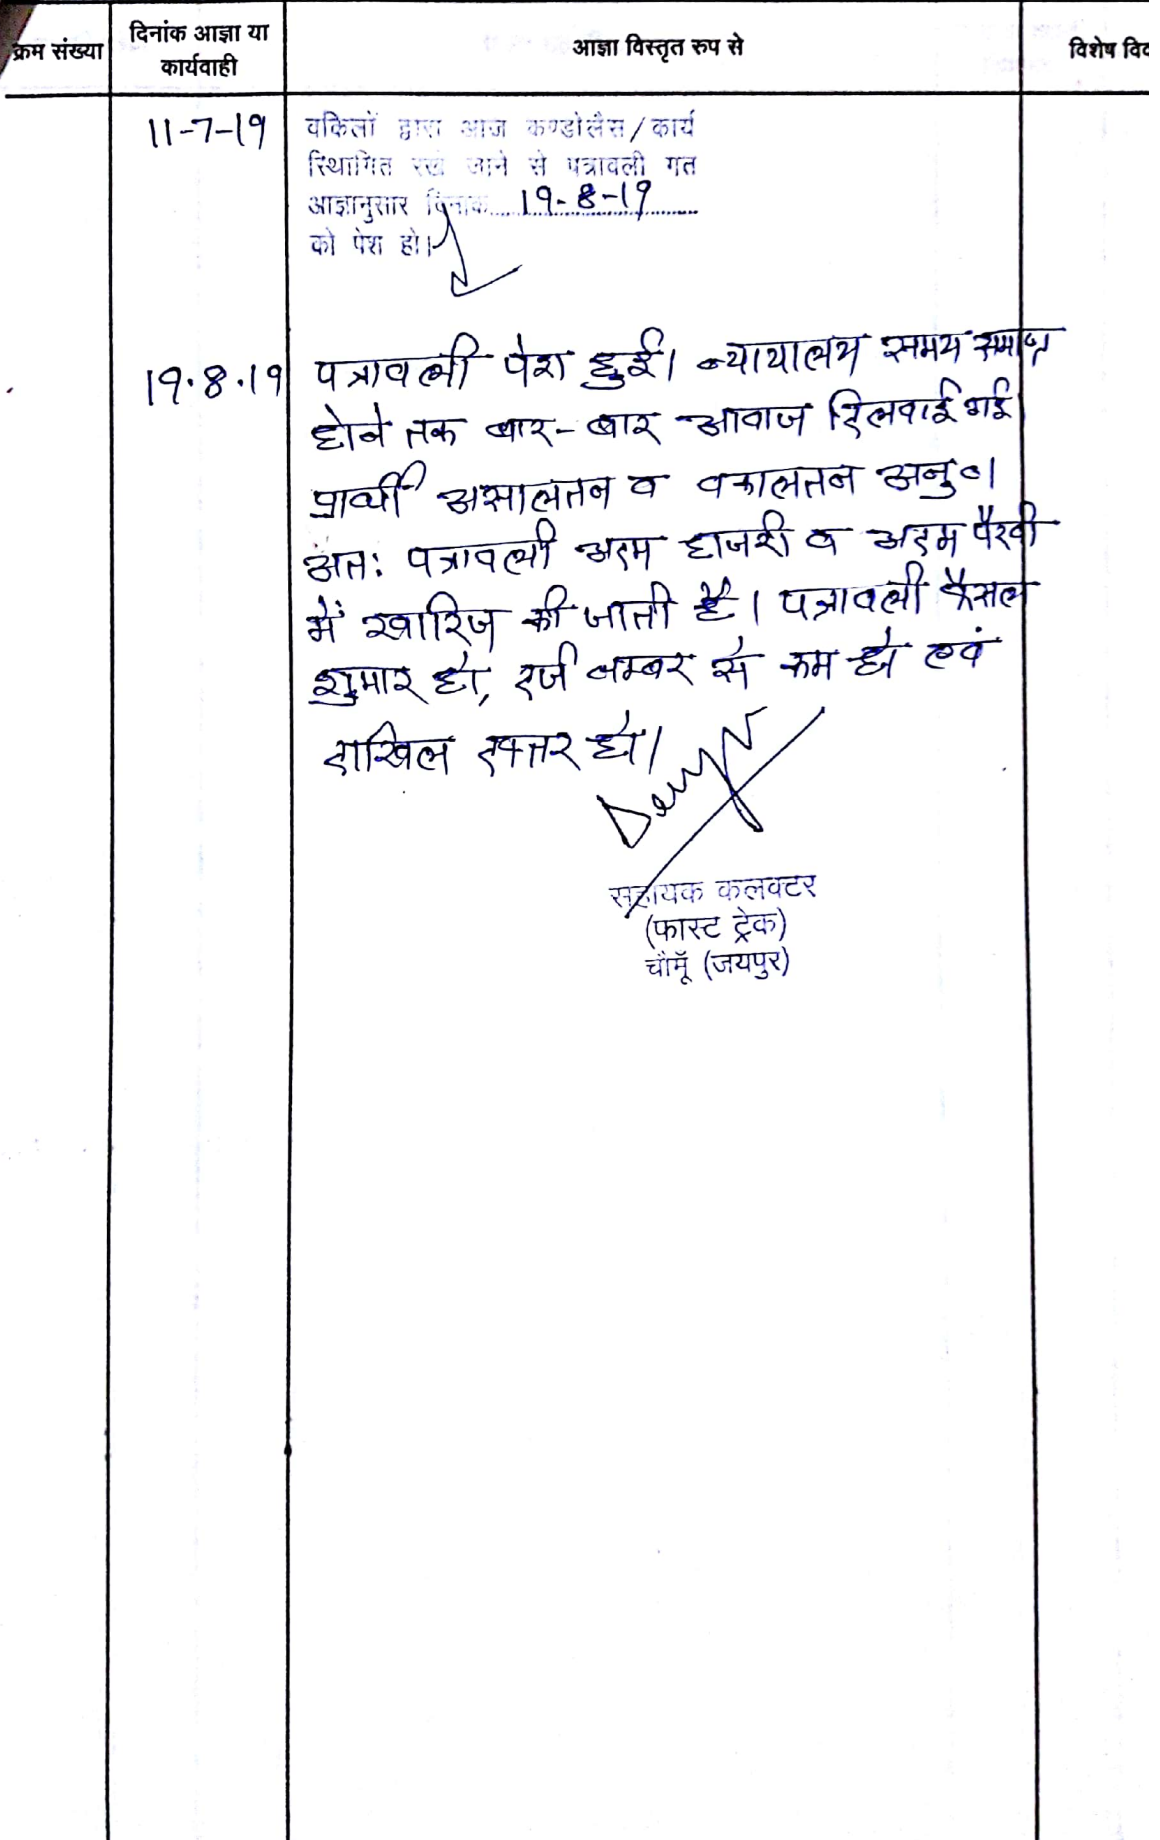 क्रम संख्या
दिनांक आज्ञा या
कार्यवाही
आज्ञा विस्तृत रुप से
विशेष विव
11-7-19
वकिलों द्वारा आज कण्डोलैंस/कार्य
स्थिागित रखे जाने से पत्रावली गत
आज्ञानुसार दिनांक 19-8-19
को पेश हो।
19.8.19
पत्रावली पेश हुई। न्यायालय समय समाप्त
होने तक बार-बार आवाज दिलवाई गई
प्रार्थी असालतन व वकालतन अनु०।
अतः पत्रावली अदम हाजरी व अदम पैरवी
में खारिज की जाती है। पत्रावली फैसल
शुमार हो, दर्ज नम्बर से कम हो एवं
दाखिल दफ्तर हो।
सहायक कलक्टर
(फास्ट ट्रेक)
चौमूँ (जयपुर)